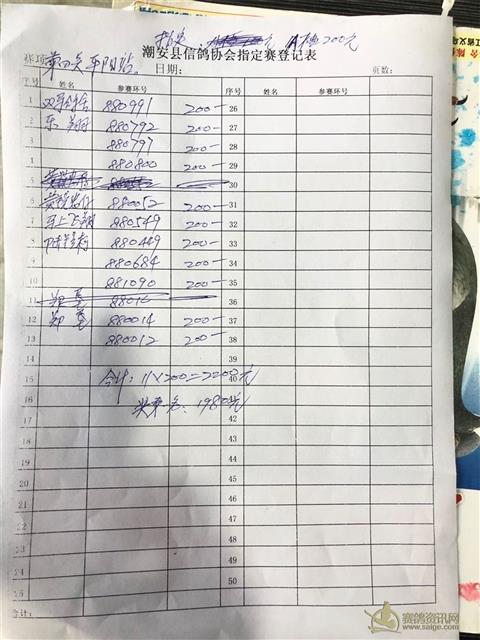 200元
潮安县信鸽协会指定赛登记表
日期: 页数:
序号 姓名 参赛环号 序号 姓名 参赛环号
1 880991 200- 26
2 880792 200- 27
3 880797 200- 28
4 880800 200- 29
5 30
6 880052 200- 31
7 马上飞翔 880549 200- 32
8 880449 200- 33
9 880684 200- 34
10 881090 200- 35
11 郑 36
12 郑 880014 200- 37
13 880012 200- 38
14 39
15 合计: 11×200=2200元 40
16 1980元
17 42
18 43
19 44
20 45
21 46
22 47
23 48
24 49
50
合计:
赛鸽资讯网
www.saige.com